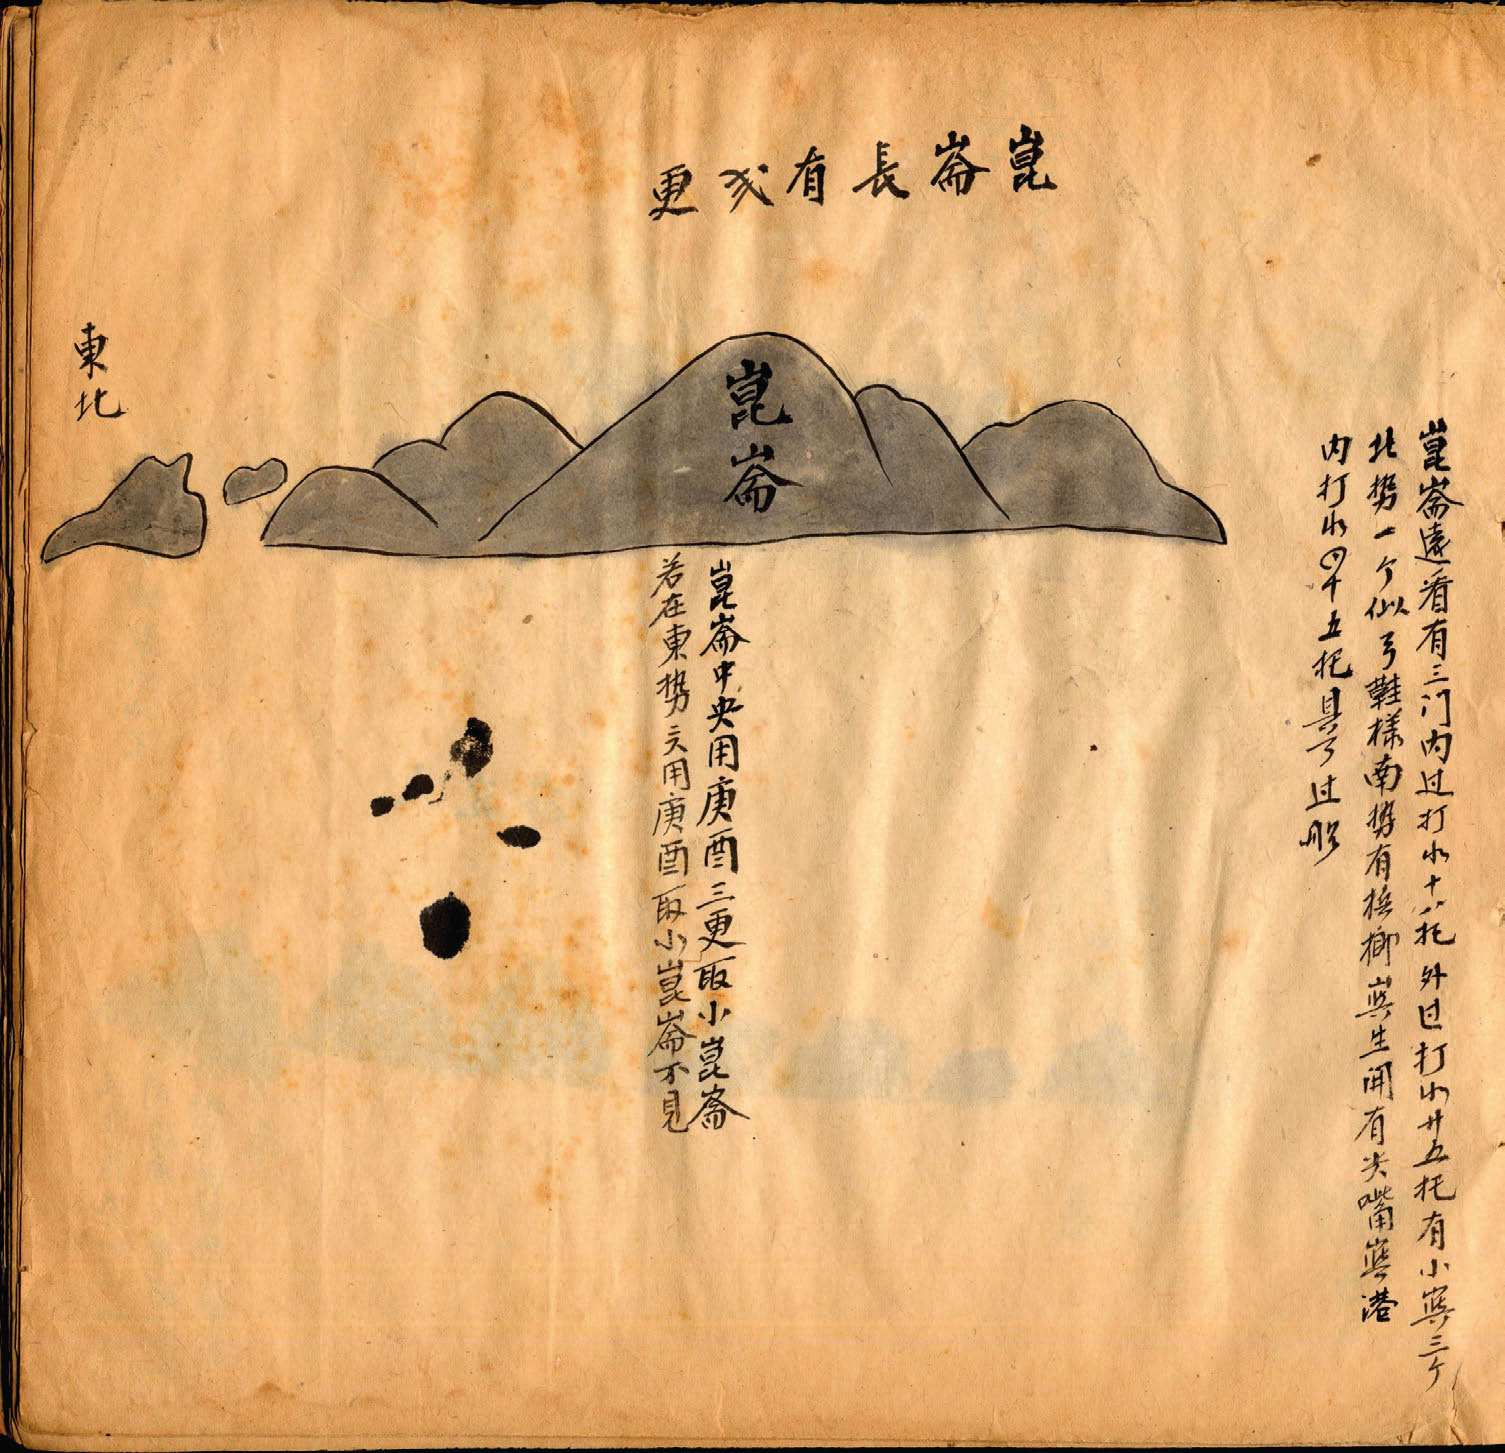 崑崙長有弍更
崑崙遠看有三门内过打水十八托外过打水廿五托有小㠘三个
北势一个似弓鞋样南势有槟榔㠘生開有尖嘴㠘港
内打水四十五托具可过船
崑崙
東北
崑崙中央用庚酉三更取小崑崙
若在東势用庚酉取小崑崙不見